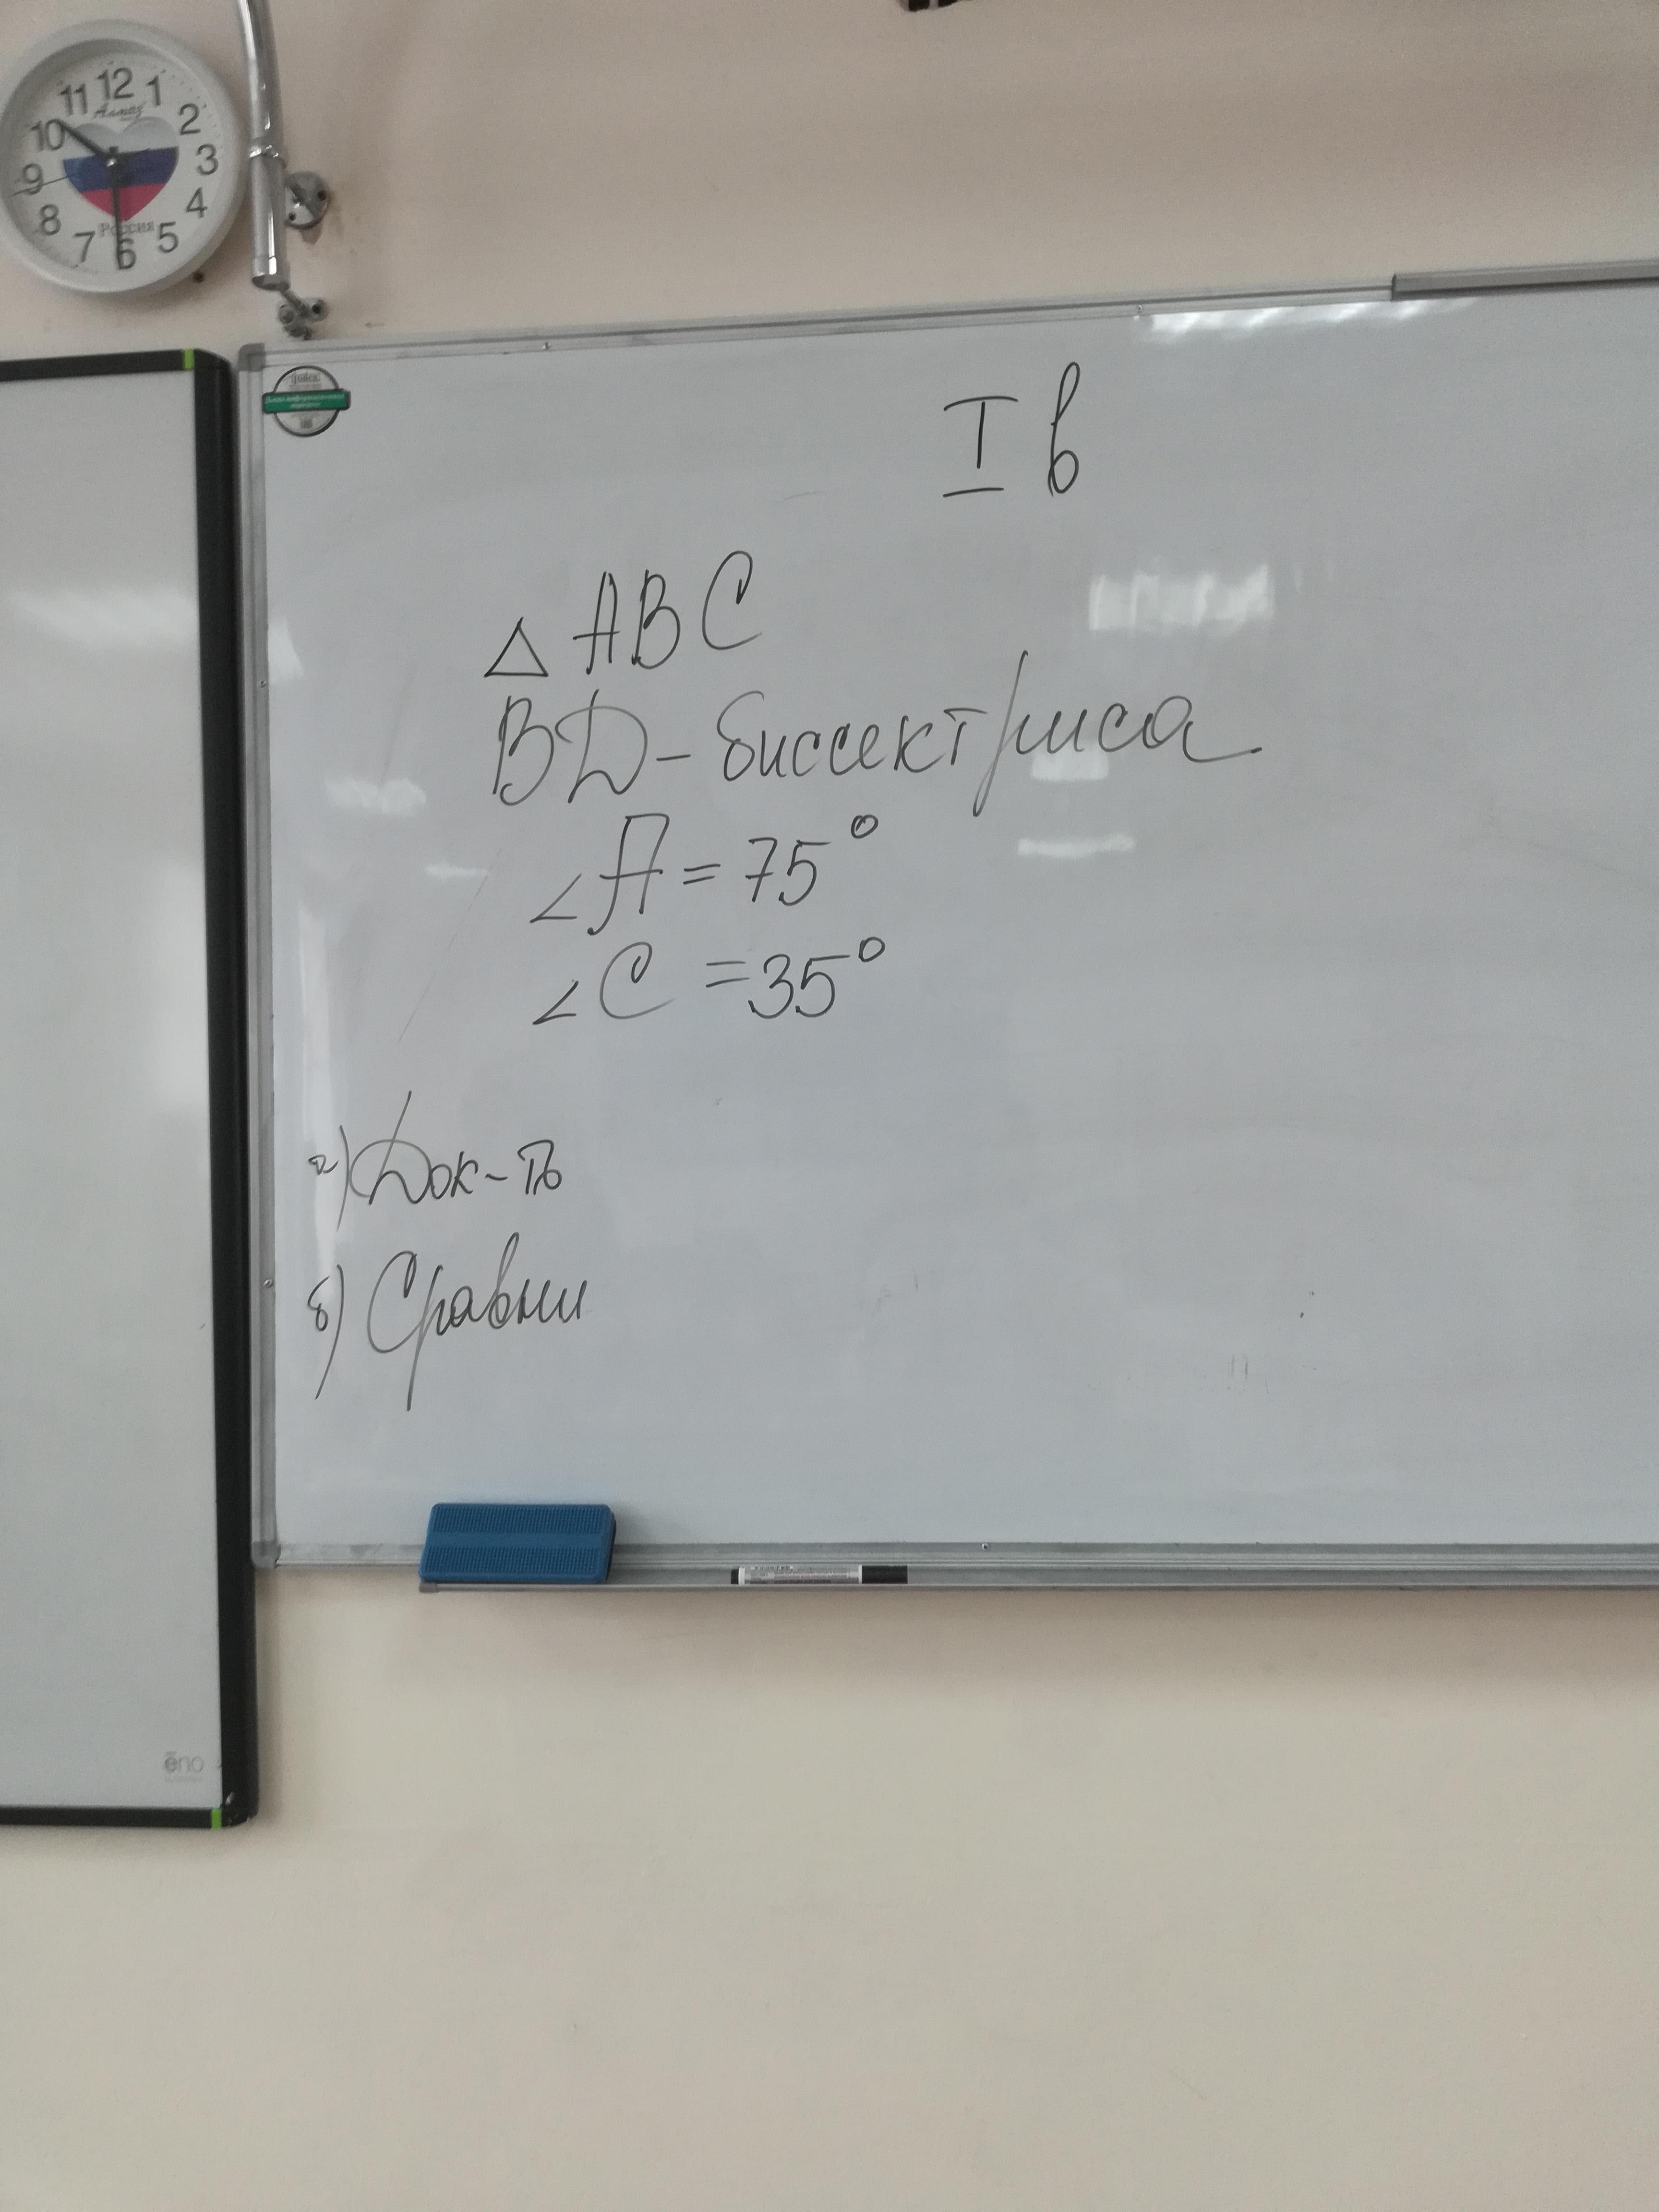 11 12 1
Алмаз
10 2
9 3
8 4
Россия
7 6 5
I в
△ ABC
BD - биссектриса
∠A = 75°
∠C = 35°
а) Док-ть
б) Сравни
ēno